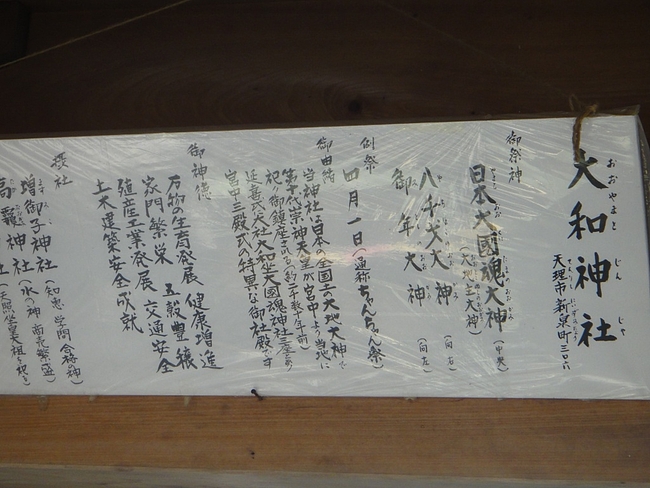 大和神社
おおやまと じんじゃ
天理市新泉町三〇六
御祭神
日本大國魂大神(中央)
(大地主大神)
八千戈大神(向右)
御年大神(向左)
例祭
四月一日(通称ちゃんちゃん祭)
御由緒
当神社は日本の全国土の大地主大神で
第十代崇神天皇が宮中より当地に
祀り御鎮座される(約二千数十年前)
延喜式大社大和坐大國魂神社三座あり
宮中三殿式の特異な御社殿です
御神徳
万物の生育発展 健康増進
家門繁栄 五穀豊穣
殖産工業発展 交通安全
土木建築安全成就
摂社
増御子神社(知恵 学問 合格の神)
高龗神社(水の神 商売繁盛)
社(天照坐皇大祖を祀る)